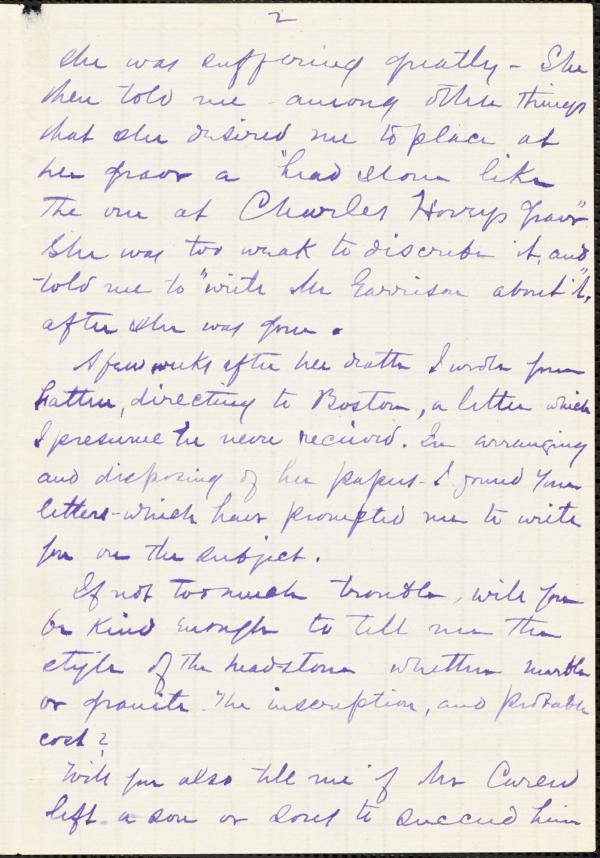 2
she was suffering greatly - She
then told me among other things
that she desired me to place at
her grave a "head stone like
the one at Charles Hoveys grave"
She was too weak to discribe it, and
told me to "write Mr Garrison about it",
after she was gone.
A few weeks after her death I wrote your
Father, directing to Boston, a letter which
I presume he never received. In arranging
and disposing of her papers - I found your
letters - which have prompted me to write
you on the subject.
If not too much trouble, will you
be kind enough to tell me the
style of the headstone whether marble
or granite. The inscription, and probable
cost?
Will you also tell me if Mr Carew
left a son or sons to succeed him